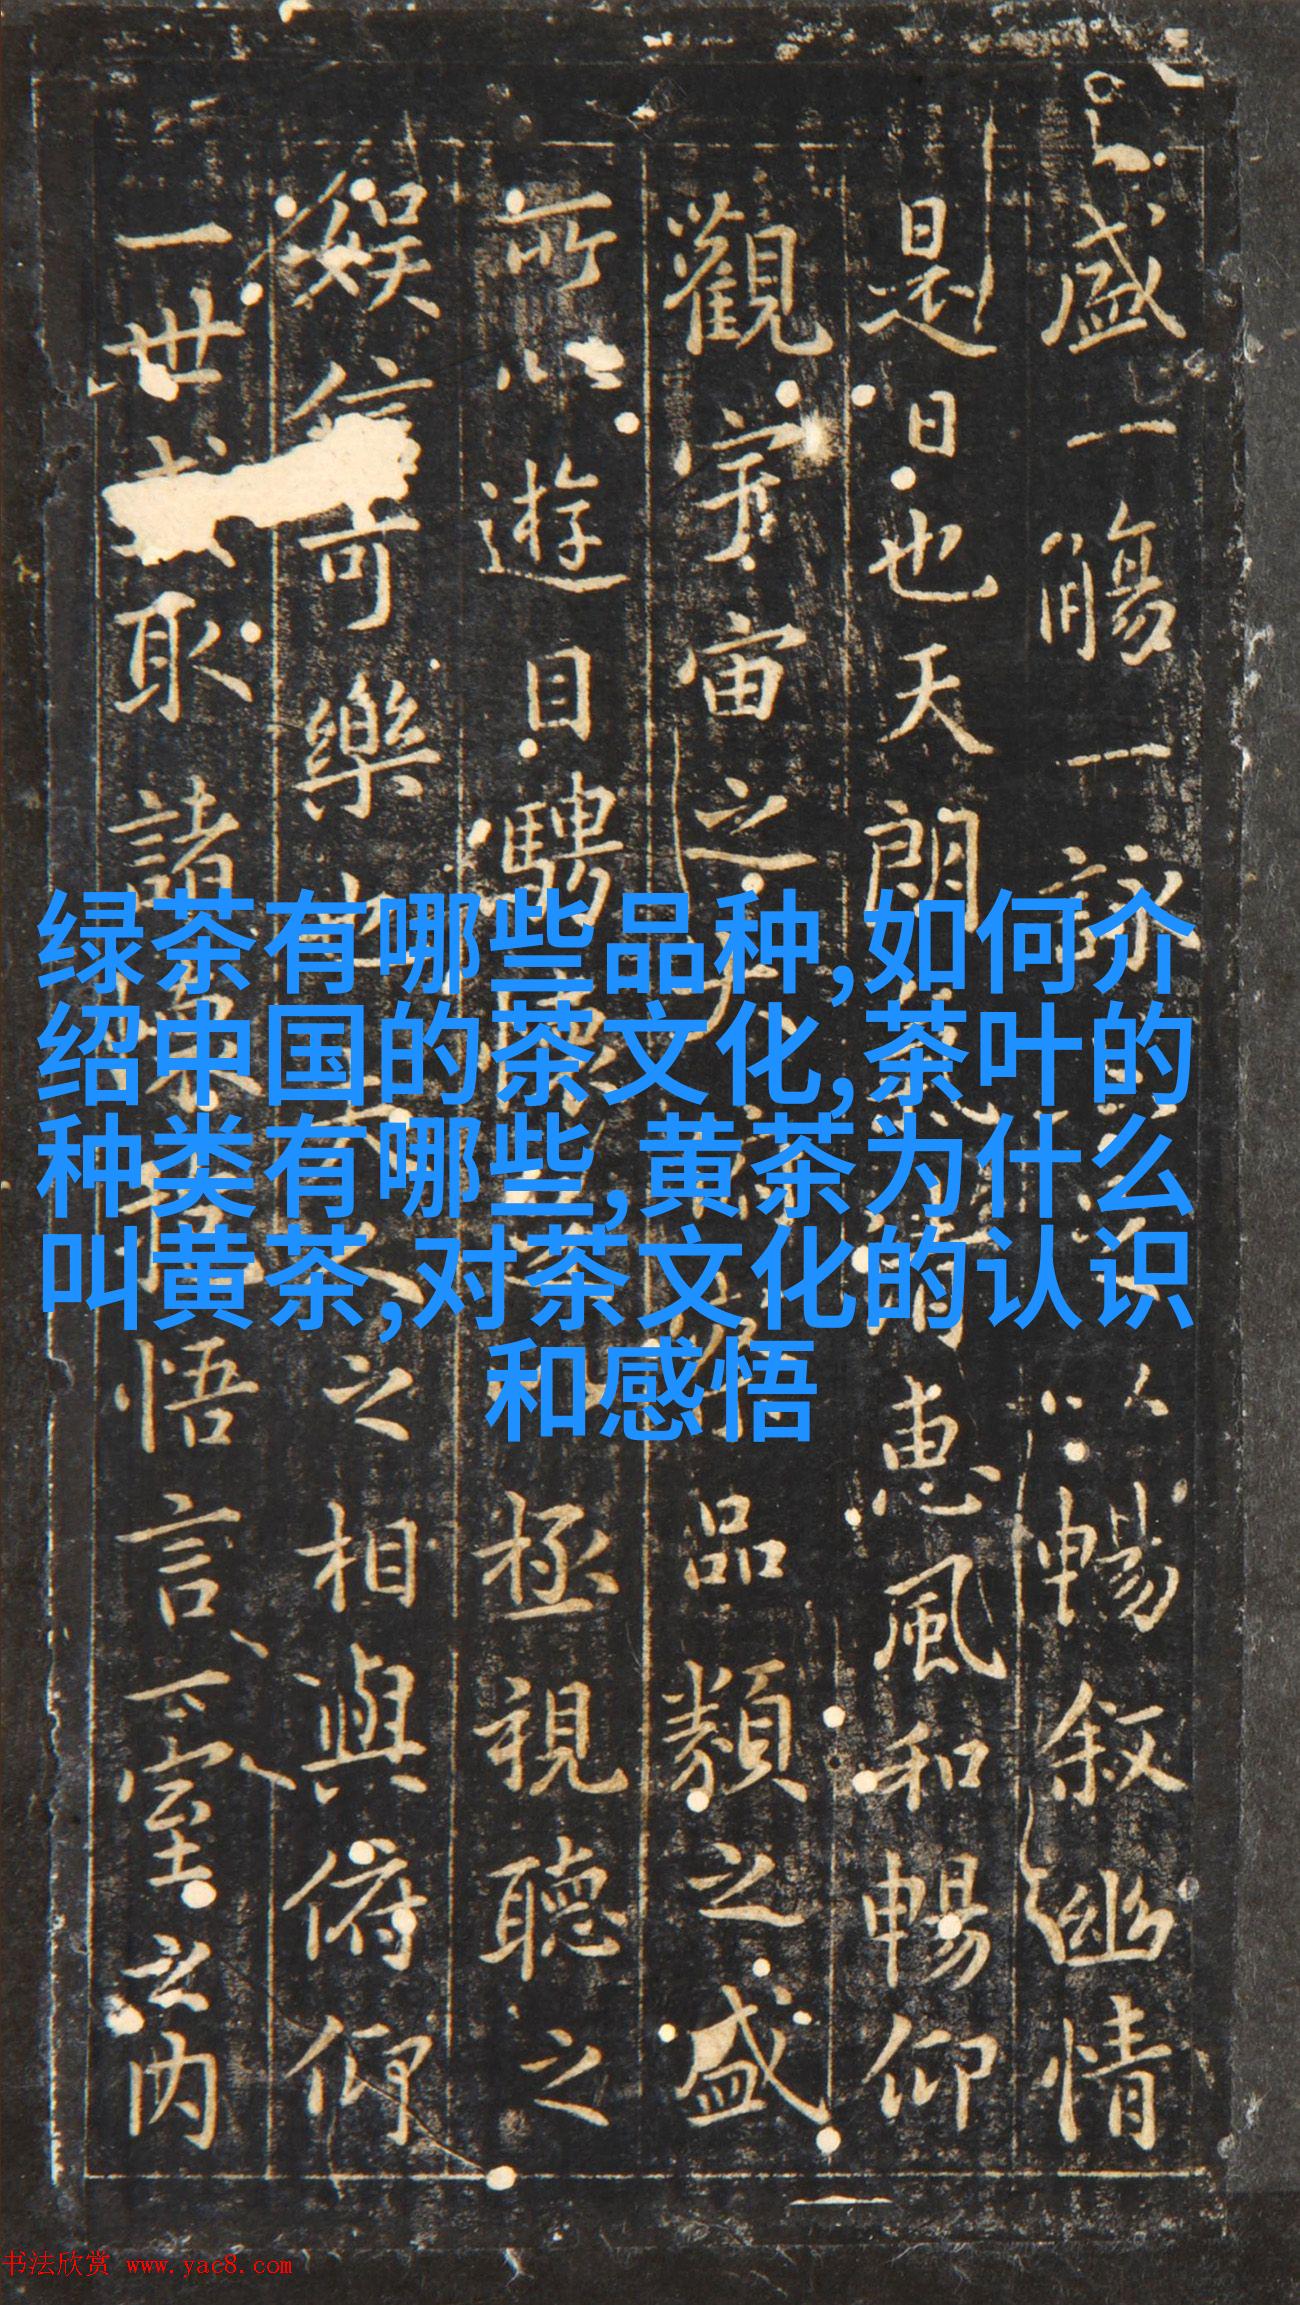 盛一觴一詠以暢叙幽情
是日也天朗清惠風和暢仰
觀宇宙之品類之盛
所以遊目騁懷極視聽之
娱信可樂也之相與俯仰
一世或取諸懷悟言一室之内
绿茶有哪些品种,如何介
绍中国的茶文化,茶叶的
种类有哪些,黄茶为什么
叫黄茶,对茶文化的认识
和感悟
书法欣赏 www.yac8.com